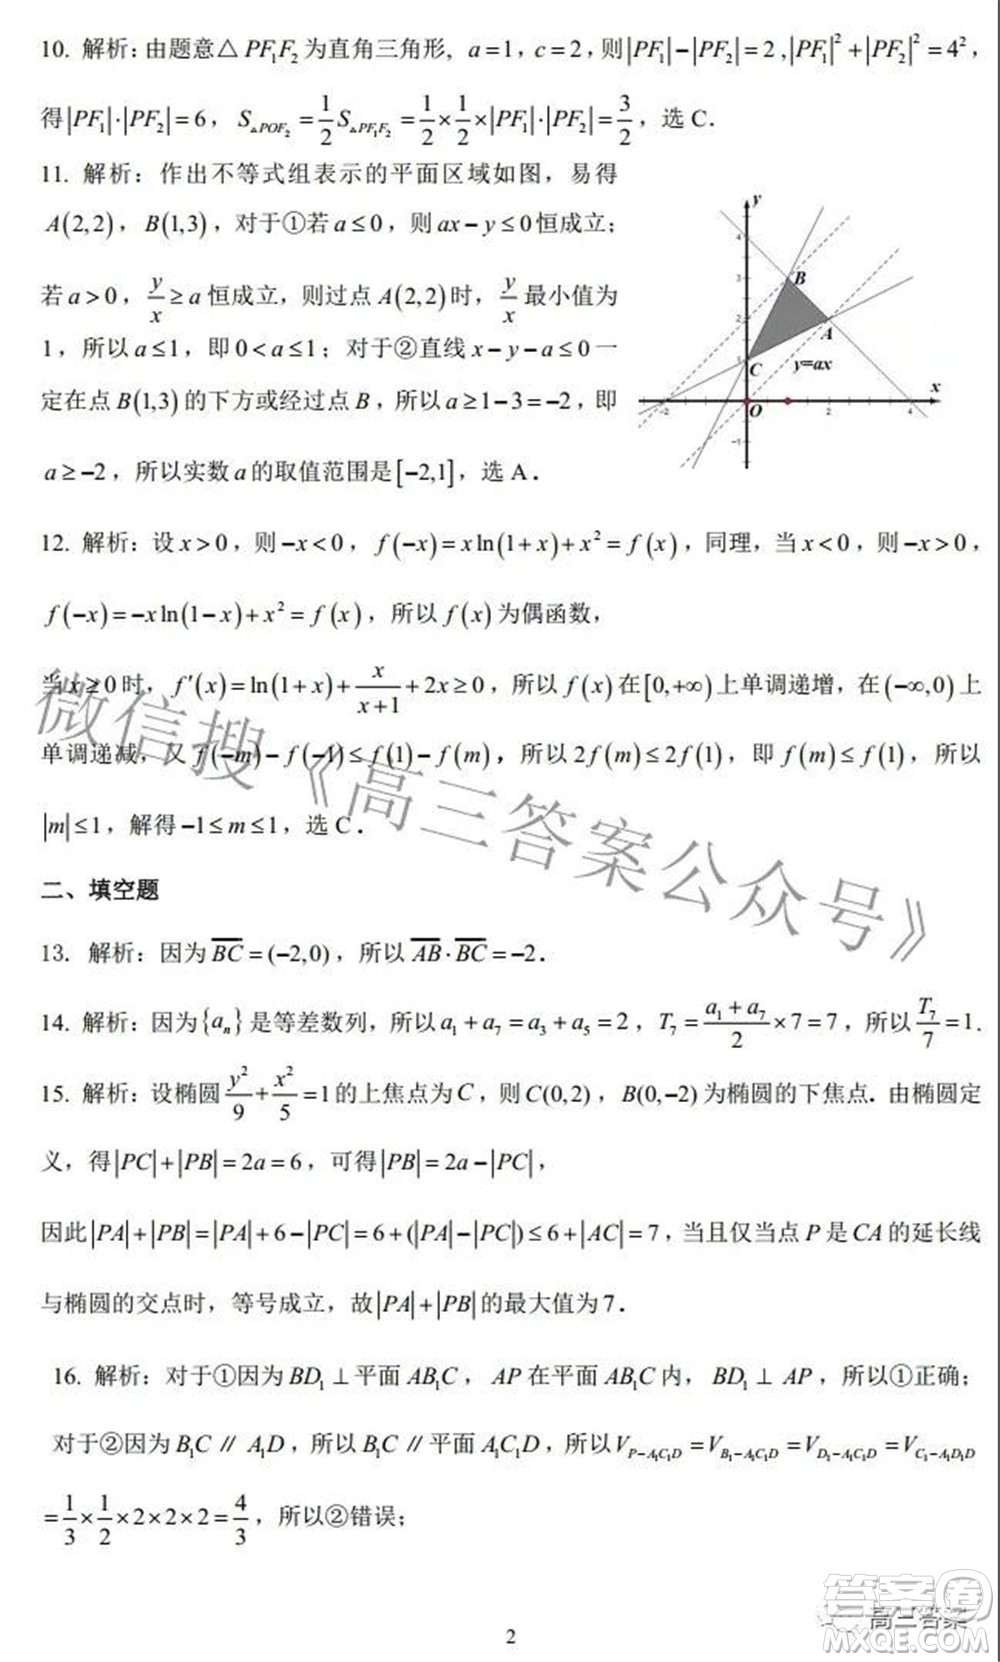 10. 解析：由题意△PF₁F₂为直角三角形，a=1，c=2，则|PF₁|−|PF₂|=2，|PF₁|²+|PF₂|²=4²，
得|PF₁|·|PF₂|=6，S△POF₂=1/2 S△PF₁F₂=1/2×1/2×|PF₁|·|PF₂|=3/2，选 C．
11. 解析：作出不等式组表示的平面区域如图，易得
A(2,2)，B(1,3)，对于①若a≤0，则ax−y≤0恒成立；
若a>0，y/x≥a恒成立，则过点A(2,2)时，y/x最小值为
1，所以a≤1，即0<a≤1；对于②直线x−y−a≤0一
定在点B(1,3)的下方或经过点B，所以a≥1−3=−2，即
a≥−2，所以实数a的取值范围是[−2,1]，选 A．
y
4
3
B
2
A
1
C
y=ax
x
−2
O
2
4
−1
12. 解析：设x>0，则−x<0，f(−x)=xln(1+x)+x²=f(x)，同理，当x<0，则−x>0，
f(−x)=−xln(1−x)+x²=f(x)，所以f(x)为偶函数，
当x≥0时，f′(x)=ln(1+x)+x/(x+1)+2x≥0，所以f(x)在[0,+∞)上单调递增，在(−∞,0)上
单调递减，又f(−m)−f(−1)≤f(1)−f(m)，所以2f(m)≤2f(1)，即f(m)≤f(1)，所以
|m|≤1，解得−1≤m≤1，选 C．
微信搜《高三答案公众号》
二、填空题
13. 解析：因为BC=(−2,0)，所以AB·BC=−2．
14. 解析：因为{aₙ}是等差数列，所以a₁+a₇=a₃+a₅=2，T₇=(a₁+a₇)/2×7=7，所以T₇/7=1．
15. 解析：设椭圆y²/9+x²/5=1的上焦点为C，则C(0,2)，B(0,−2)为椭圆的下焦点．由椭圆定
义，得|PC|+|PB|=2a=6，可得|PB|=2a−|PC|，
因此|PA|+|PB|=|PA|+6−|PC|=6+(|PA|−|PC|)≤6+|AC|=7，当且仅当点P是CA的延长线
与椭圆的交点时，等号成立，故|PA|+|PB|的最大值为7．
16. 解析：对于①因为BD₁⊥平面AB₁C，AP在平面AB₁C内，BD₁⊥AP，所以①正确；
对于②因为B₁C∥A₁D，所以B₁C∥平面A₁C₁D，所以V_P−A₁C₁D=V_B₁−A₁C₁D=V_D₁−A₁C₁D=V_C₁−A₁D₁D
=1/3×1/2×2×2×2=4/3，所以②错误；
高三答案
答案圈
MXQE.COM
2